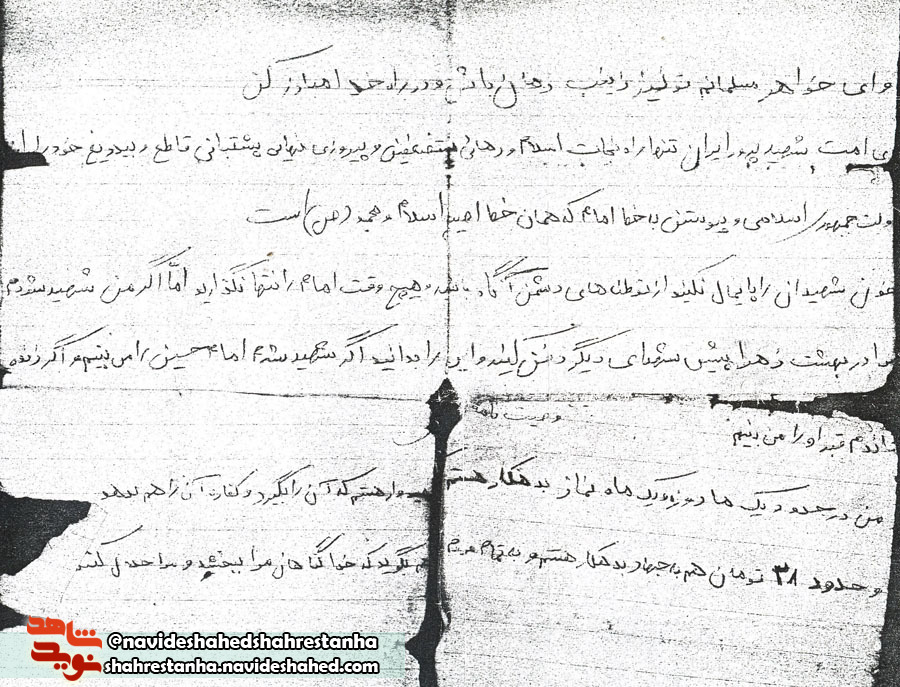 و ای خواهر مسلمانم تو نیز زینب زمان باش و در راه خدا مبارزه کن
ای امت شهید پرور ایران تنها راه نجات اسلام و رهائی مستضعفین و پیروزی نهایی پشتیبانی قاطع و بیدریغ خود را از
دولت جمهوری اسلامی و پیوستن به خط امام که همان خط اصیل اسلام و محمد (ص) است
خون شهیدان را پایمال نکنید از توطئه های دشمن آگاه باشید و هیچ وقت امام را تنها نگذارید امّا اگر من شهید شدم
مرا در بهشت زهرا پیش شهدای دیگر دفن کنید و این را بدانید اگر شهید شدم امام حسین را می بینم و اگر زنده
ماندم قبر او را می بینم
وصیت نامه
من در حدود یک ماه روزه و یک ماه نماز بدهکار هستم امیدوار هستم که آن را بگیرد و کفاره آن را هم بدهد
و حدود ۳۸ تومان هم به جهاد بدهکار هستم و به تمام مردم هم بگوید که خدا گناهان مرا ببخشد و مرا حلال کنند
شاهد
نوید
@navideshahedshahrestanha
shahrestanha.navideshahed.com